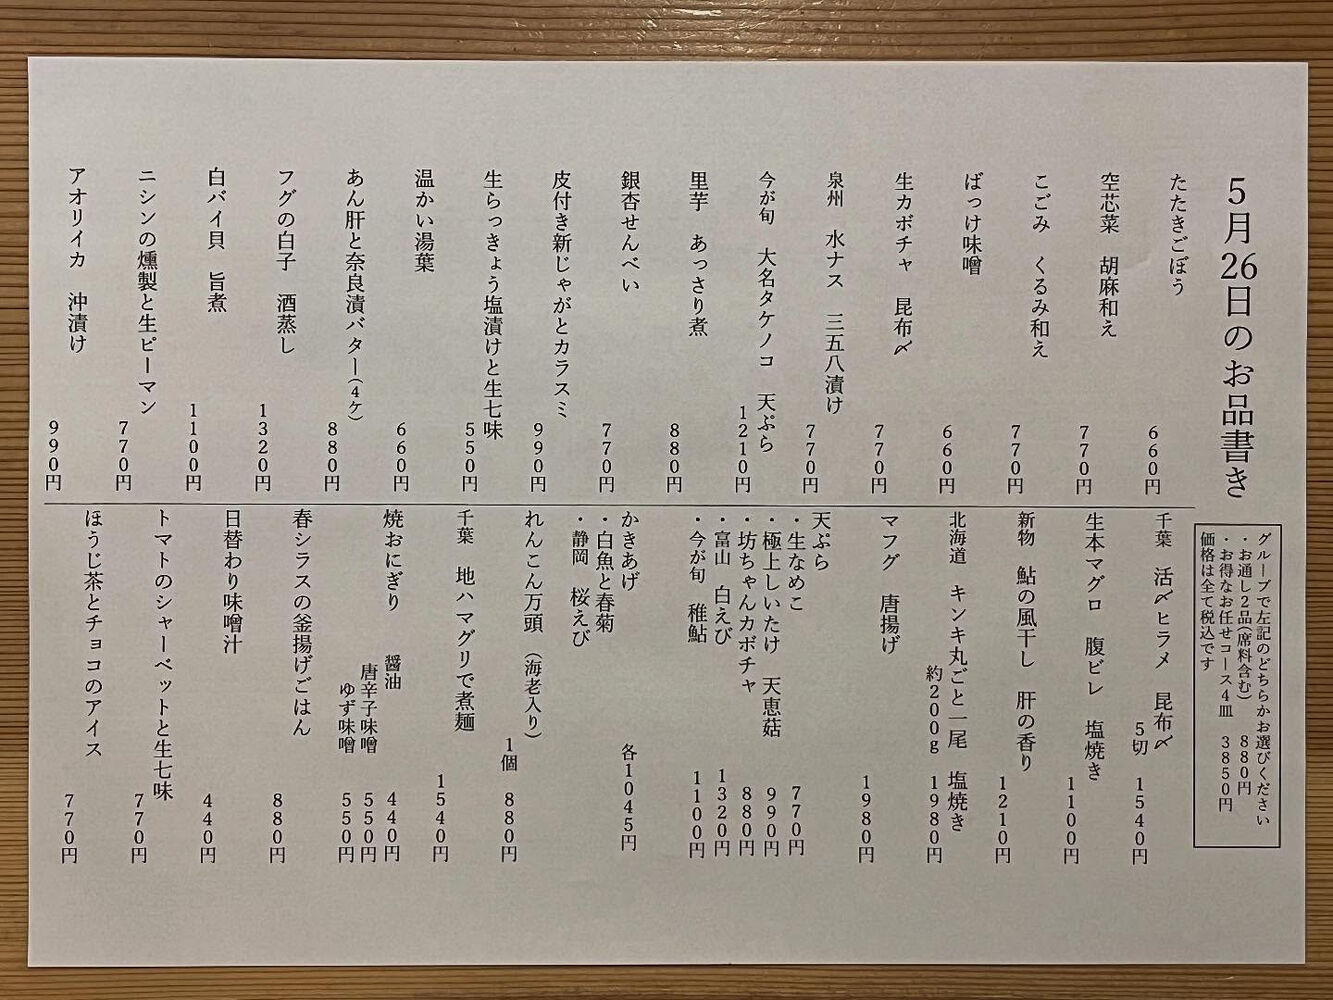 5月26日のお品書き
グループで左記のどちらかお選びください
・お通し2品(席料含む) 880円
・お得なお任せコース4皿 3850円
価格は全て税込です
たたきごぼう 660円
空芯菜 胡麻和え 770円
こごみ くるみ和え 770円
ばっけ味噌 660円
生カボチャ 昆布〆 770円
泉州 水ナス 三五八漬け 770円
今が旬 大名タケノコ 天ぷら 1210円
里芋 あっさり煮 880円
銀杏せんべい 770円
皮付き新じゃがとカラスミ 990円
生らっきょう塩漬けと生七味 550円
温かい湯葉 660円
あん肝と奈良漬バター(4ケ) 880円
フグの白子 酒蒸し 1320円
白バイ貝 旨煮 1100円
ニシンの燻製と生ピーマン 770円
アオリイカ 沖漬け 990円
千葉 活〆ヒラメ 昆布〆
5切 1540円
生本マグロ 腹ビレ 塩焼き 1100円
新物 鮎の風干し 肝の香り 1210円
北海道 キンキ丸ごと一尾 塩焼き
約200g 1980円
マフグ 唐揚げ 1980円
天ぷら
・生なめこ 770円
・極上しいたけ 天恵菇 990円
・坊ちゃんカボチャ 880円
・富山 白えび 1320円
・今が旬 稚鮎 1100円
かきあげ 各1045円
・白魚と春菊
・静岡 桜えび
れんこん万頭 (海老入り)
1個 880円
千葉 地ハマグリで煮麺 1540円
焼おにぎり 醤油 440円
唐辛子味噌 550円
ゆず味噌 550円
春シラスの釜揚げごはん 880円
日替わり味噌汁 440円
トマトのシャーベットと生七味 770円
ほうじ茶とチョコのアイス 770円